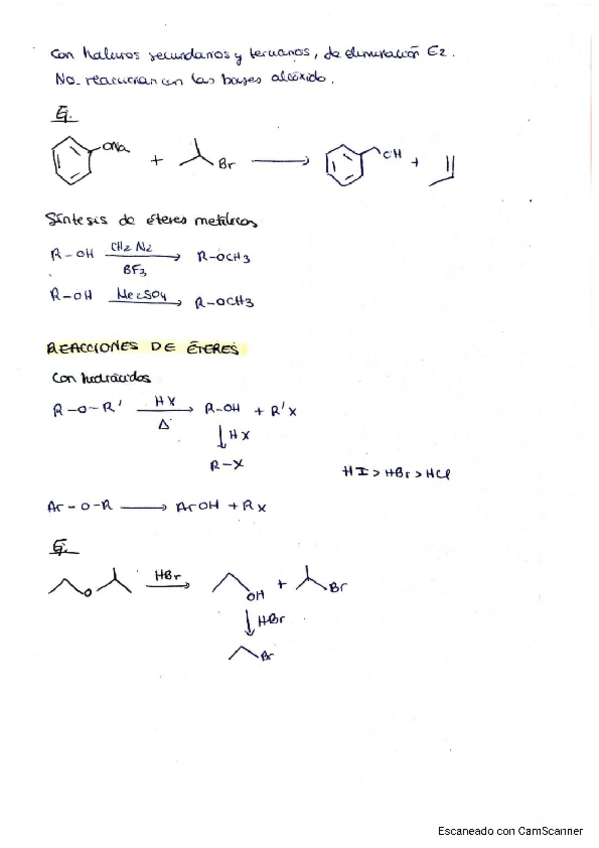 Con haluros secundarios y terciarios, da eliminación E2.
No reaccionan con las bases alcóxido.
Ej.
ONa + Br ⟶ OH +
Síntesis de éteres metílicos
R-OH CH2N2 BF3 ⟶ R-OCH3
R-OH Me2SO4 ⟶ R-OCH3
REACCIONES DE ÉTERES
Con hidrácidos
R-O-R' HX Δ ⟶ R-OH + R'X
↓ HX
R-X
HI > HBr > HCl
Ar-O-R ⟶ ArOH + RX
Ej.
O HBr ⟶ OH + Br
↓ HBr
Br
Escaneado con CamScanner